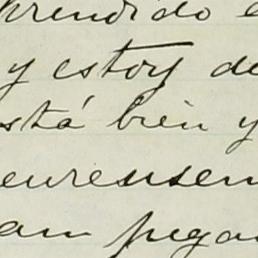 prendido e
y estoy de
está bien y
eurensen
am pega